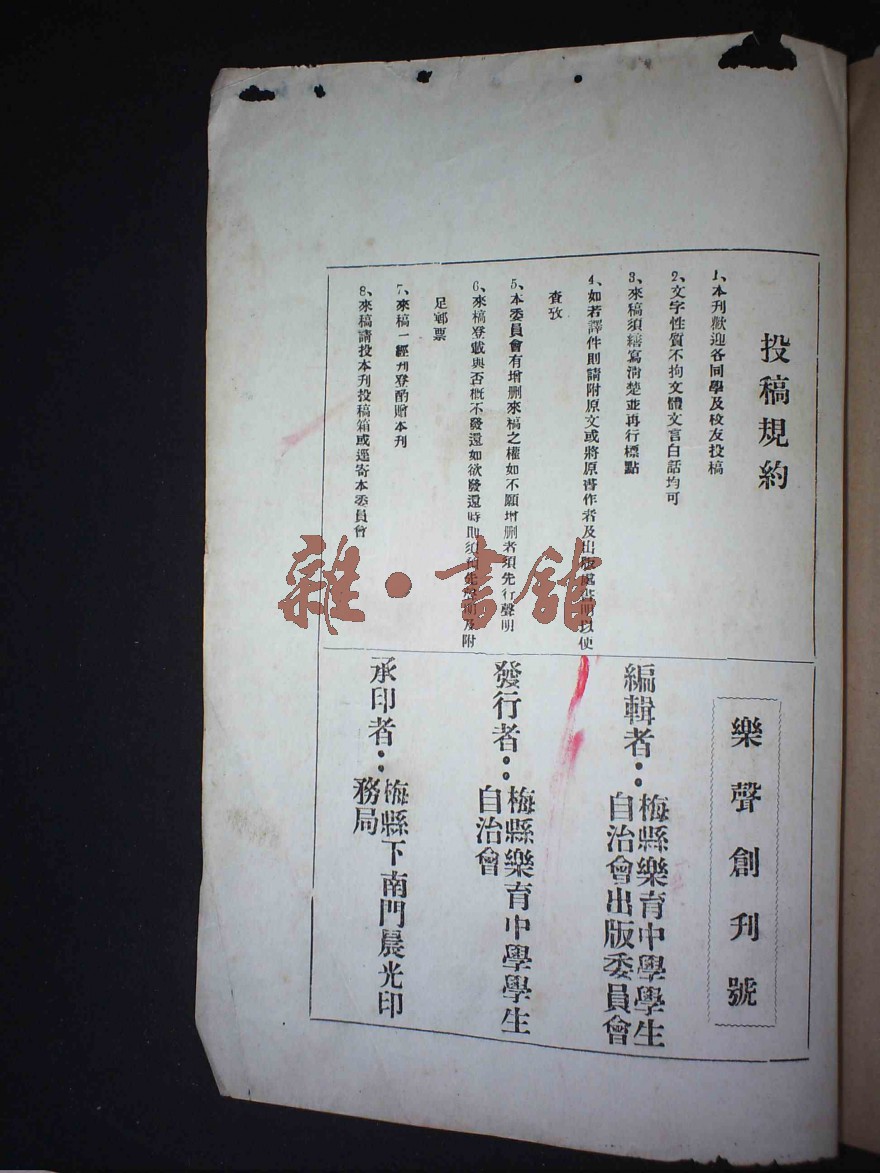 投稿規約
1、本刊歡迎各同學及校友投稿
2、文字性質不拘文體文言白話均可
3、來稿須繕寫淸楚並再行標點
4、如若譯件則請附原文或將原書作者及出版處書明以便
查攷
5、本委員會有增刪來稿之權如不願增刪者須先行聲明
6、來稿登載與否概不發還如欲發還時則須預先聲明及附
足郵票
7、來稿一經刋登酌贈本刊
8、來稿請投本刊投稿箱或逕寄本委員會
樂聲創刋號
編輯者：梅縣樂育中學學生
自治會出版委員會
發行者：梅縣樂育中學學生
自治會
承印者：梅縣下南門晨光印
務局
雜·書館